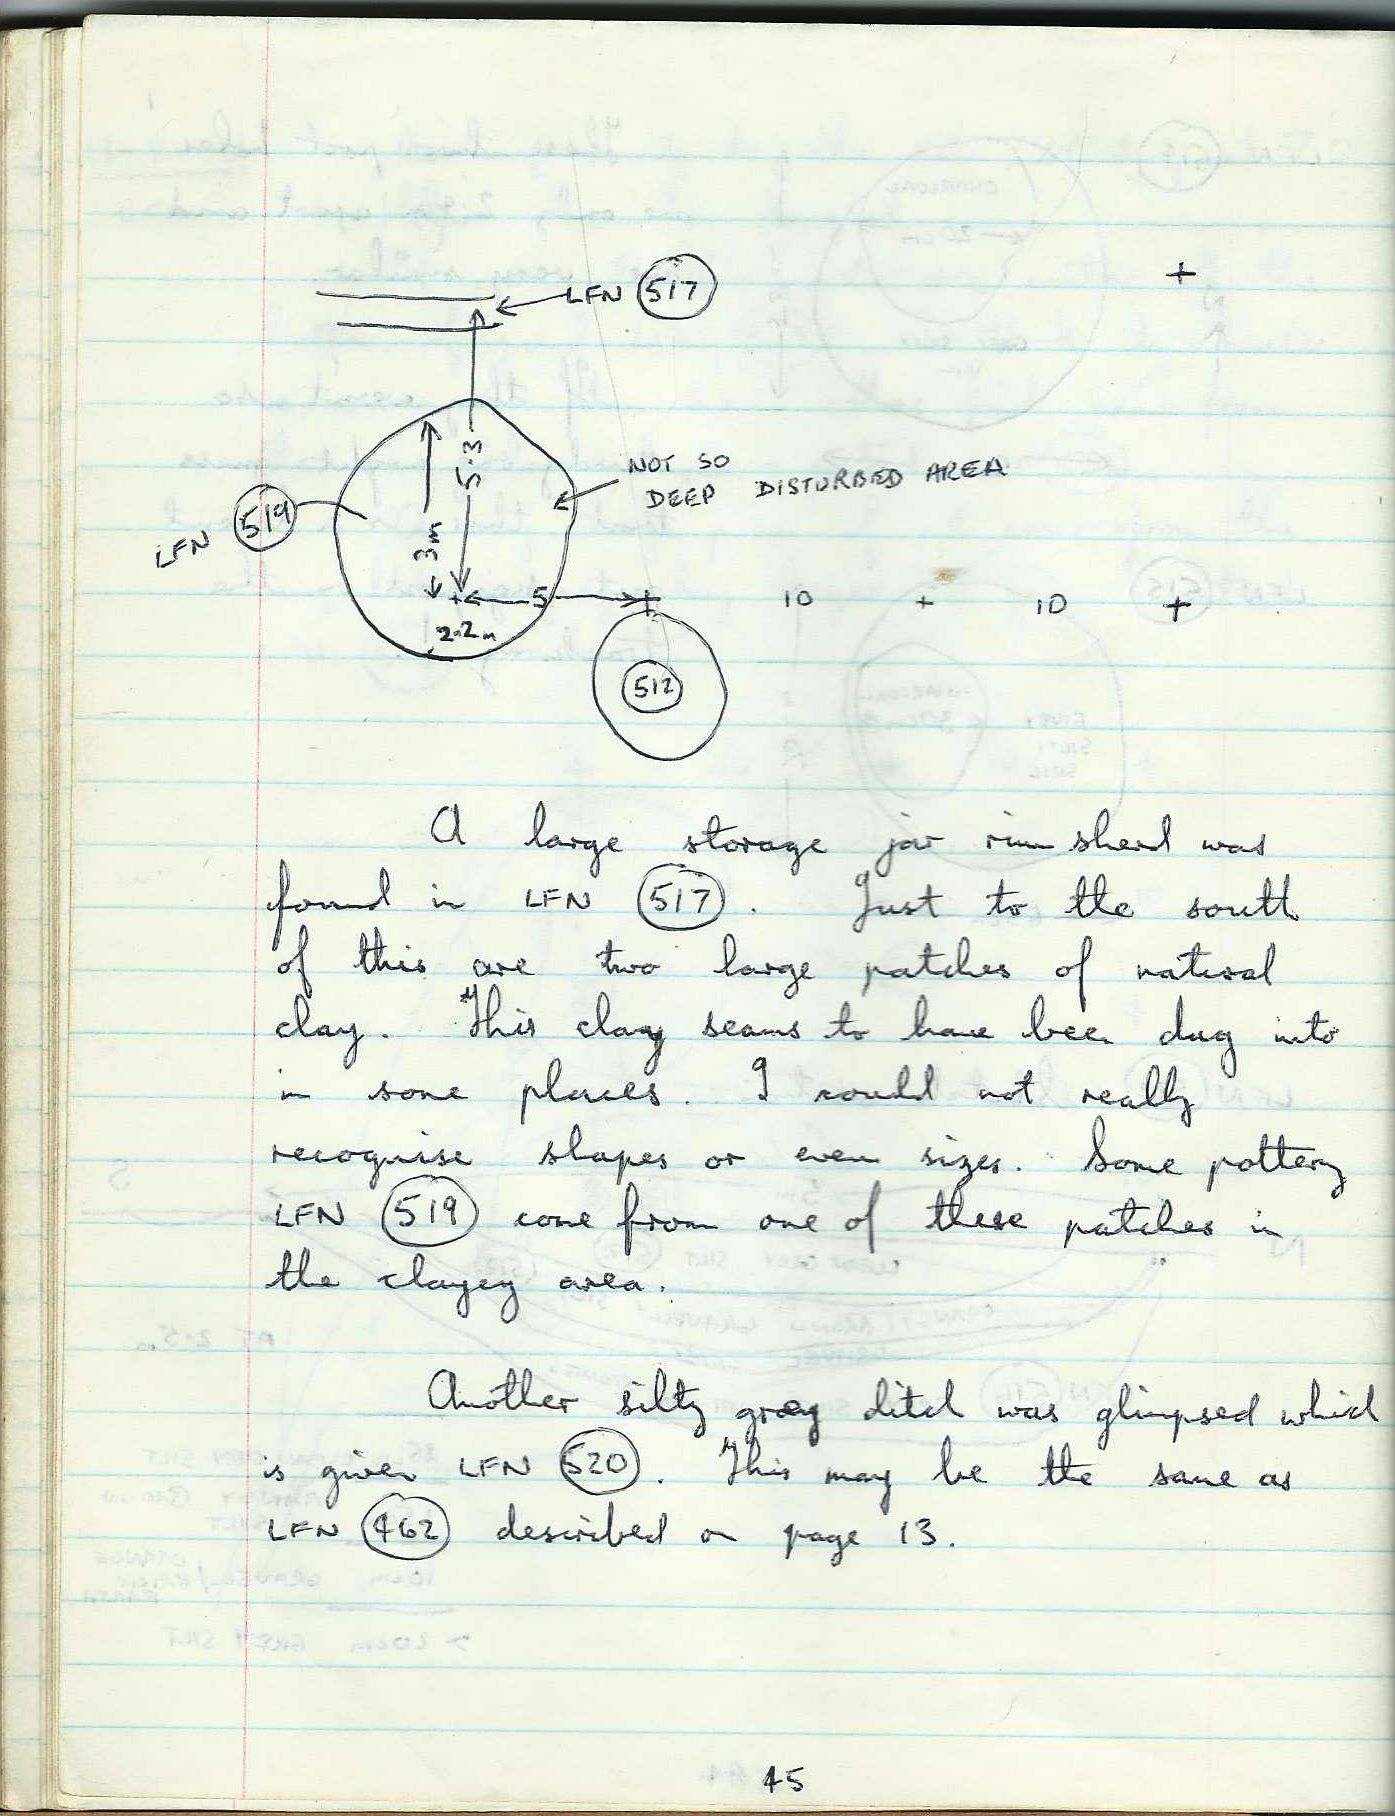 LFN 517
+
5.3
NOT SO
DEEP DISTURBED AREA
LFN 519
3m
+ 5 + 10 + 10 +
2.2m
512
A large storage jar rim sherd was
found in LFN 517. Just to the south
of this are two large patches of natural
clay. This clay seams to have been dug into
in some places. I could not really
recognise shapes or even sizes. Some pottery
LFN 519 come from one of these patches in
the clayey area.
Another silty grey ditch was glimpsed which
is given LFN 520. This may be the same as
LFN 462 described on page 13.
45